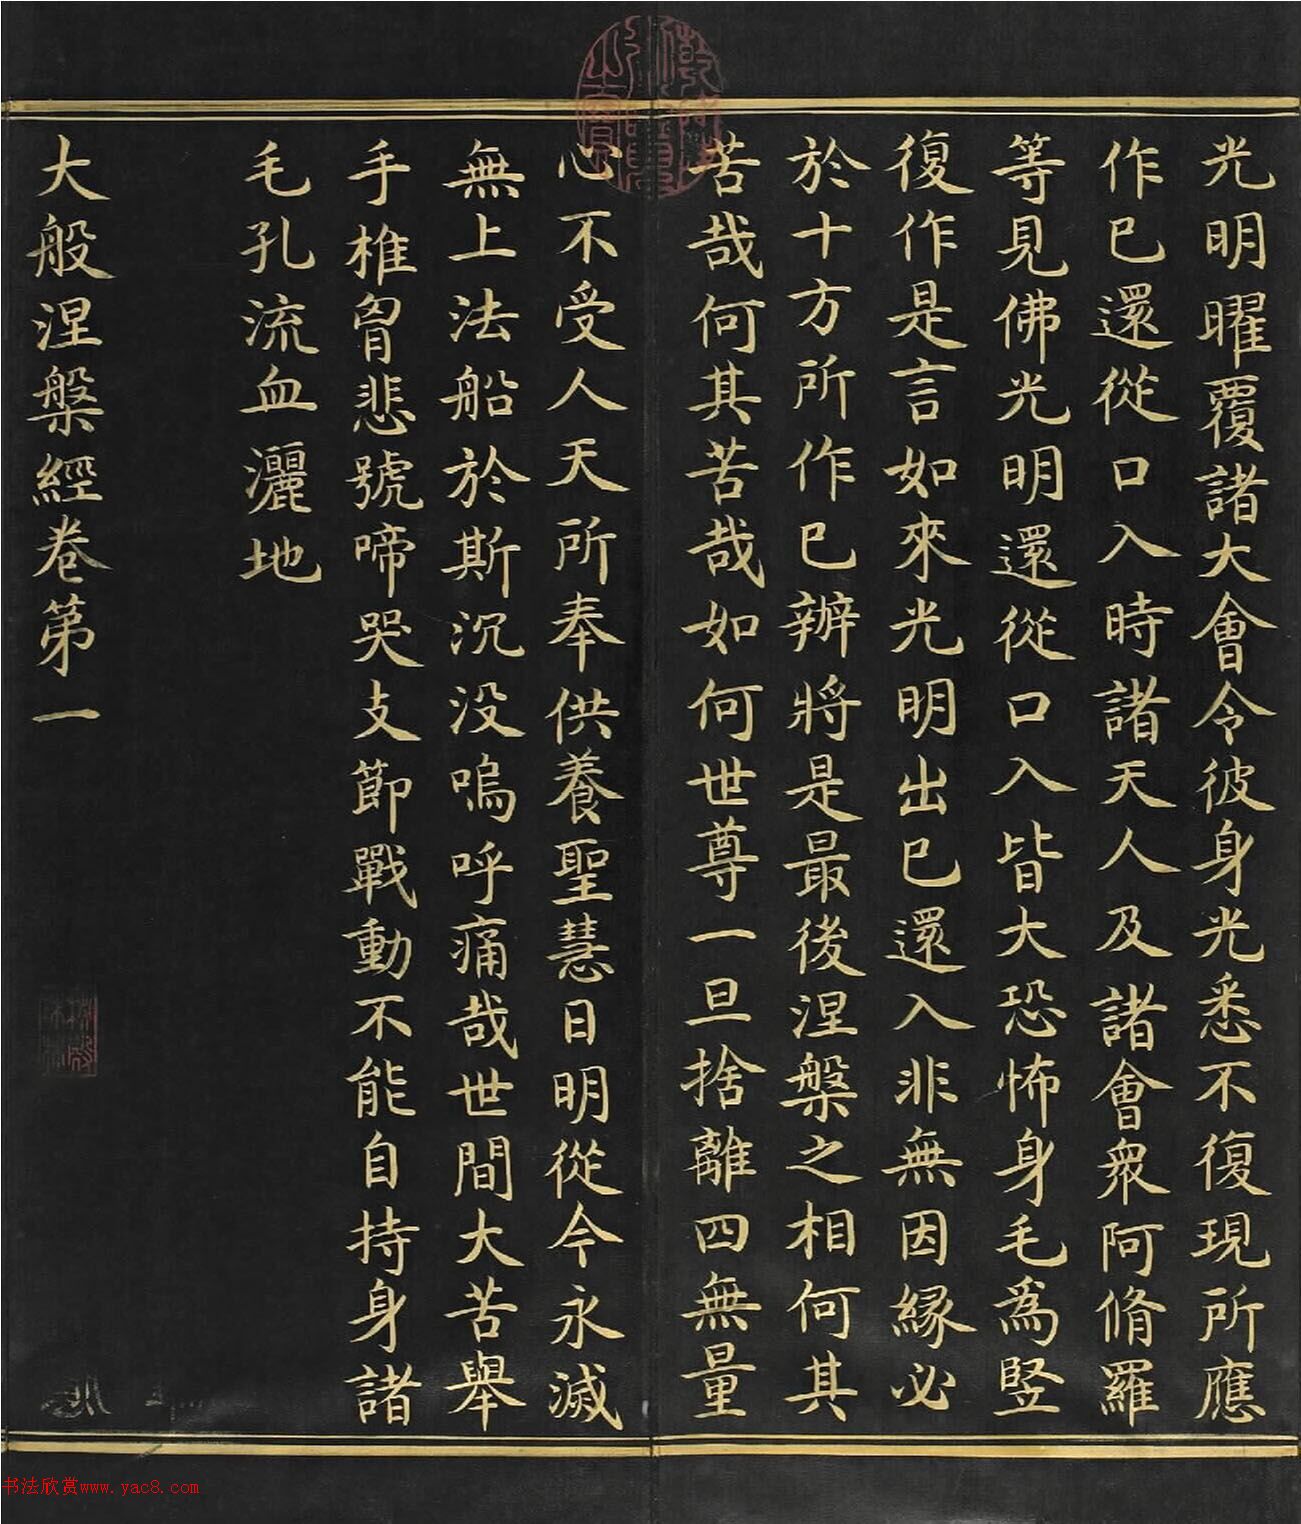 光明曜覆諸大會令彼身光悉不復現所應
作已還從口入時諸天人及諸會衆阿脩羅
等見佛光明還從口入皆大恐怖身毛爲竪
復作是言如來光明出已還入非無因縁必
於十方所作已辦將是最後涅槃之相何其
苦哉何其苦哉如何世尊一旦捨離四無量
心不受人天所奉供養聖慧日明從今永滅
無上法船於斯沉没嗚呼痛哉世間大苦舉
手椎胷悲號啼哭支節戰動不能自持身諸
毛孔流血灑地
大般涅槃經卷第一
书法欣赏www.yac8.com